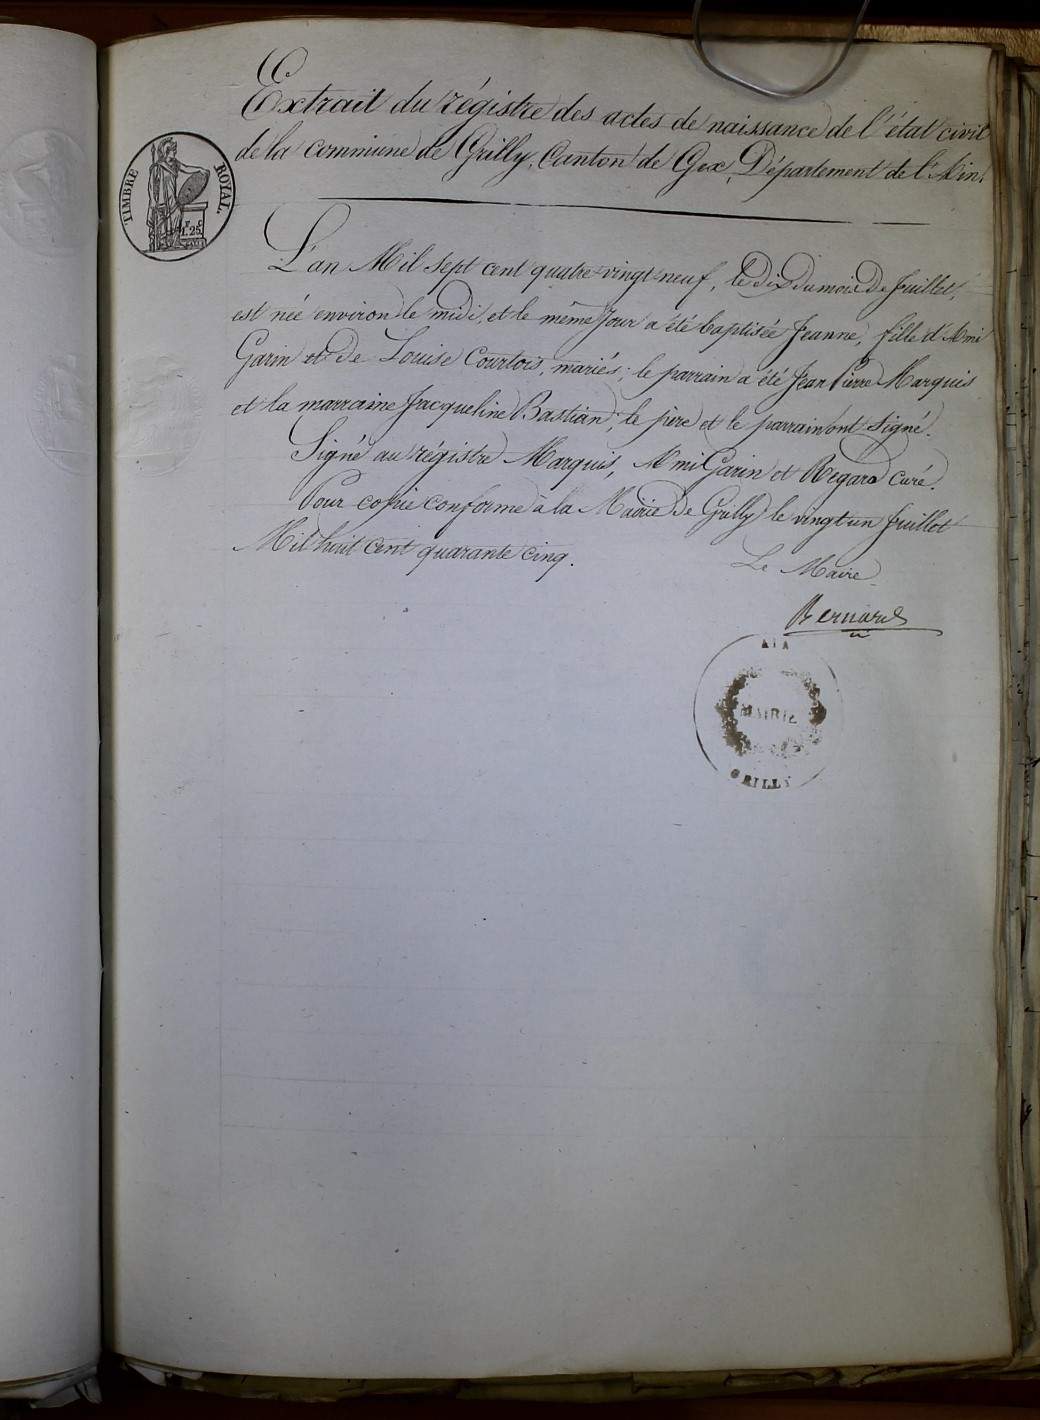 Extrait du régistre des actes de naissance de l'état civil
de la commune de Grilly, Canton de Gex, Département de l'Ain.
TIMBRE ROYAL.
1F 25c
L'an Mil sept cent quatre-vingt-neuf, le dix du mois de Juillet,
est née environ le midi, et le même jour a été baptisée Jeanne, fille d'Ami
Garin et de Louise Courtois, mariés; le parrain a été Jean Pierre Marquis
et la marraine Jacqueline Bastian; le père et le parrain ont signé.
Signé au régistre Marquis, Ami Garin et Regard curé.
Pour copie conforme à la Mairie de Grilly le vingt un Juillet
Mil huit cent quarante cinq.
Le Maire
Bernard
AIN
MAIRIE
GRILLY